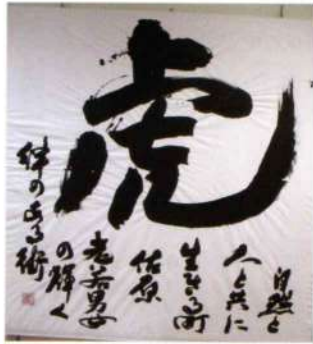 虎
自然と
人と共に
生きる町
佐原
老若男女
の輝く
絆のある街